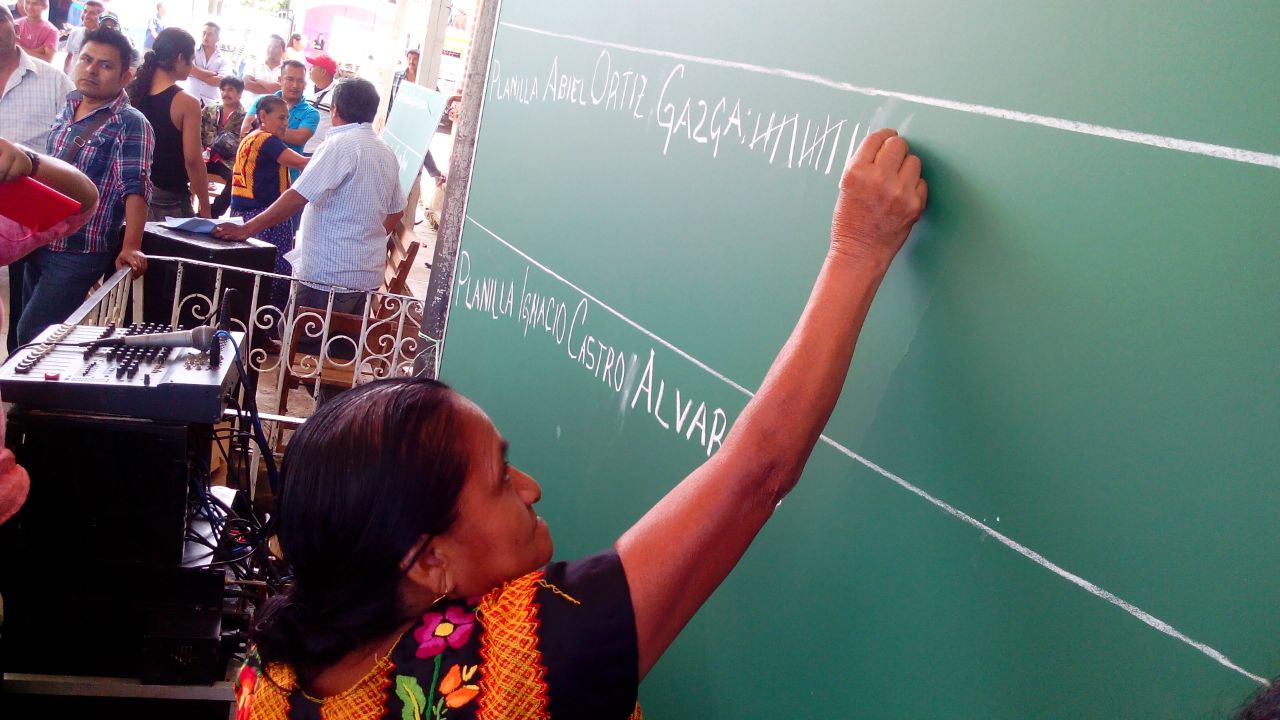 PLANILLA ABIEL ORTIZ GAZGA:
PLANILLA IGNACIO CASTRO ALVAR